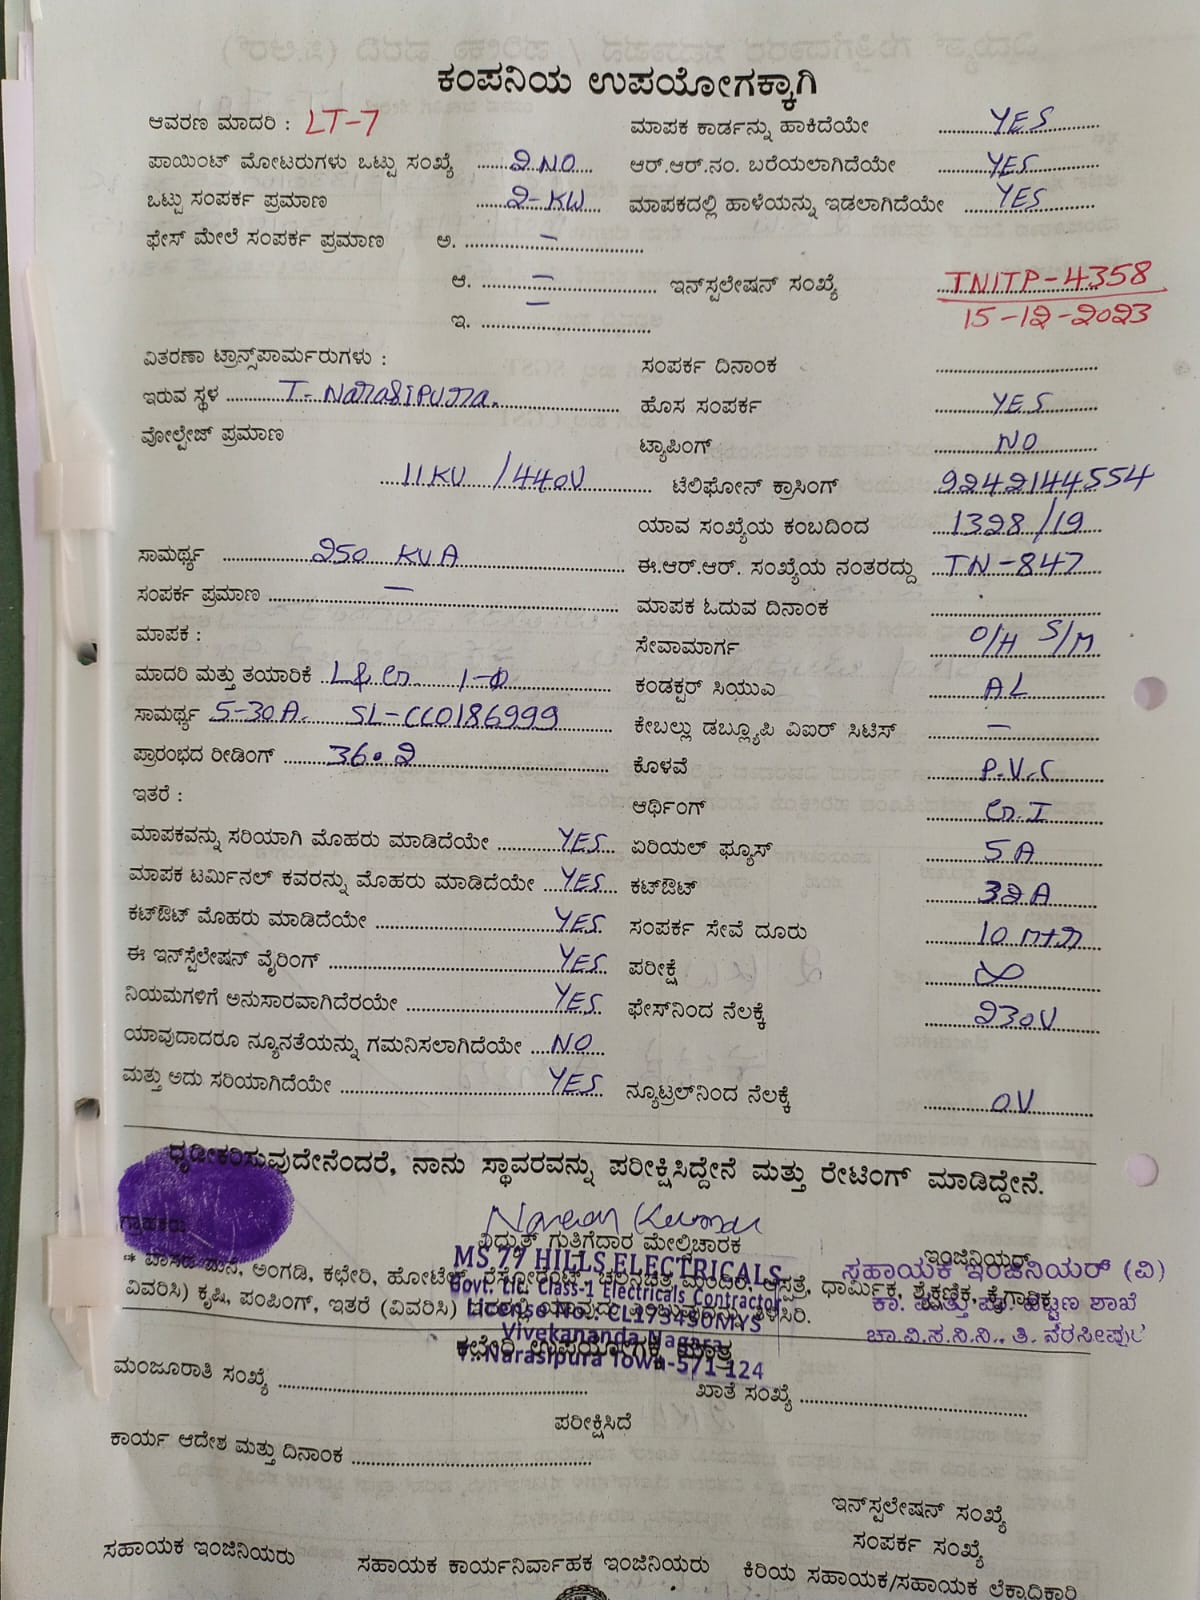 ಕಂಪನಿಯ ಉಪಯೋಗಕ್ಕಾಗಿ
ಆವರಣ ಮಾದರಿ : LT-7
ಮಾಪಕ ಕಾರ್ಡನ್ನು ಹಾಕಿದೆಯೇ YES
ಪಾಯಿಂಟ್ ಮೋಟರುಗಳು ಒಟ್ಟು ಸಂಖ್ಯೆ 2 NO
ಆರ್.ಆರ್.ನಂ. ಬರೆಯಲಾಗಿದೆಯೇ YES
ಒಟ್ಟು ಸಂಪರ್ಕ ಪ್ರಮಾಣ 2-KW
ಮಾಪಕದಲ್ಲಿ ಹಾಳೆಯನ್ನು ಇಡಲಾಗಿದೆಯೇ YES
ಫೇಸ್ ಮೇಲೆ ಸಂಪರ್ಕ ಪ್ರಮಾಣ ಅ. –
ಆ. –
ಇನ್‌ಸ್ಪಲೇಷನ್ ಸಂಖ್ಯೆ TNITP-4358
15-12-2023
ಇ. –
ವಿತರಣಾ ಟ್ರಾನ್ಸ್‌ಪಾರ್ಮರುಗಳು :
ಸಂಪರ್ಕ ದಿನಾಂಕ
ಇರುವ ಸ್ಥಳ T- Narasipura.
ಹೊಸ ಸಂಪರ್ಕ YES
ವೋಲ್ಟೇಜ್ ಪ್ರಮಾಣ
ಟ್ಯಾಪಿಂಗ್ NO
11KV /440V
ಟೆಲಿಫೋನ್ ಕ್ರಾಸಿಂಗ್ 9242144554
ಯಾವ ಸಂಖ್ಯೆಯ ಕಂಬದಿಂದ 1328/19
ಸಾಮರ್ಥ್ಯ 250 KVA
ಈ.ಆರ್.ಆರ್. ಸಂಖ್ಯೆಯ ನಂತರದ್ದು TN-847
ಸಂಪರ್ಕ ಪ್ರಮಾಣ –
ಮಾಪಕ ಓದುವ ದಿನಾಂಕ
ಮಾಪಕ :
ಸೇವಾಮಾರ್ಗ O/H S/M
ಮಾದರಿ ಮತ್ತು ತಯಾರಿಕೆ L& G. 1-Φ
ಕಂಡಕ್ಟರ್ ಸಿಯುಎ AL
ಸಾಮರ್ಥ್ಯ 5-30A. SL-CC0186999
ಕೇಬಲ್ಲು ಡಬ್ಲ್ಯೂಪಿ ವಿಐರ್ ಸಿಟಿಸ್ –
ಪ್ರಾರಂಭದ ರೀಡಿಂಗ್ 36.2
ಕೊಳವೆ P.V.C
ಇತರೆ :
ಆರ್ಥಿಂಗ್ G.I
ಮಾಪಕವನ್ನು ಸರಿಯಾಗಿ ಮೊಹರು ಮಾಡಿದೆಯೇ YES
ಏರಿಯಲ್ ಫ್ಯೂಸ್ 5A
ಮಾಪಕ ಟರ್ಮಿನಲ್ ಕವರನ್ನು ಮೊಹರು ಮಾಡಿದೆಯೇ YES
ಕಟ್‌ಔಟ್ 32A
ಕಟ್‌ಔಟ್ ಮೊಹರು ಮಾಡಿದೆಯೇ YES
ಸಂಪರ್ಕ ಸೇವೆ ದೂರು 10 mtr
ಈ ಇನ್‌ಸ್ಪೆಲೇಷನ್ ವೈರಿಂಗ್ YES
ಪರೀಕ್ಷೆ ∞
ನಿಯಮಗಳಿಗೆ ಅನುಸಾರವಾಗಿದೆರಯೇ YES
ಫೇಸ್‌ನಿಂದ ನೆಲಕ್ಕೆ 230V
ಯಾವುದಾದರೂ ನ್ಯೂನತೆಯನ್ನು ಗಮನಿಸಲಾಗಿದೆಯೇ NO
ಮತ್ತು ಅದು ಸರಿಯಾಗಿದೆಯೇ YES
ನ್ಯೂಟ್ರಲ್‌ನಿಂದ ನೆಲಕ್ಕೆ 0V
ಧೃಡೀಕರಿಸುವುದೇನೆಂದರೆ, ನಾನು ಸ್ಥಾವರವನ್ನು ಪರೀಕ್ಷಿಸಿದ್ದೇನೆ ಮತ್ತು ರೇಟಿಂಗ್ ಮಾಡಿದ್ದೇನೆ.
Naresh Kumar
ಗ್ರಾಹಕರು
ವಿಧ್ಯುತ್ ಗುತ್ತಿಗೆದಾರ ಮೇಲ್ವಿಚಾರಕ
ಇಂಜಿನಿಯರ್
MS 77 HILLS ELECTRICALS
Govt. Lic. Class-1 Electricals Contractor
License No.: CL173450MYS
Vivekananda Nagara
T. Narasipura Town-571 124
ಸಹಾಯಕ ಇಂಜಿನಿಯರ್ (ವಿ)
ಕಾ. ಮತ್ತು ಪಾ. ಪಟ್ಟಣ ಶಾಖೆ
ಚಾ.ವಿ.ಸ.ನಿ.ನಿ., ತಿ. ನರಸೀಪುರ
ಅಂಗಡಿ, ಕಛೇರಿ, ಹೋಟೆಲ್, ರೆಸ್ಟೋರೆಂಟ್, ಚಲನಚಿತ್ರ ಮಂದಿರ, ಆಸ್ಪತ್ರೆ, ಧಾರ್ಮಿಕ, ಶೈಕ್ಷಣಿಕ, ಕೈಗಾರಿಕ
ವಿವರಿಸಿ) ಕೃಷಿ, ಪಂಪಿಂಗ್, ಇತರೆ (ವಿವರಿಸಿ) ತಿಳಿಸಿರಿ.
ಕಛೇರಿ ಉಪಯೋಗಕ್ಕೆ ಮಾತ್ರ
ಮಂಜೂರಾತಿ ಸಂಖ್ಯೆ
ಖಾತೆ ಸಂಖ್ಯೆ
ಪರೀಕ್ಷಿಸಿದೆ
ಕಾರ್ಯ ಆದೇಶ ಮತ್ತು ದಿನಾಂಕ
ಇನ್‌ಸ್ಪಲೇಷನ್ ಸಂಖ್ಯೆ
ಸಂಪರ್ಕ ಸಂಖ್ಯೆ
ಸಹಾಯಕ ಇಂಜಿನಿಯರು
ಸಹಾಯಕ ಕಾರ್ಯನಿರ್ವಾಹಕ ಇಂಜಿನಿಯರು
ಕಿರಿಯ ಸಹಾಯಕ/ಸಹಾಯಕ ಲೆಕ್ಕಾಧಿಕಾರಿ